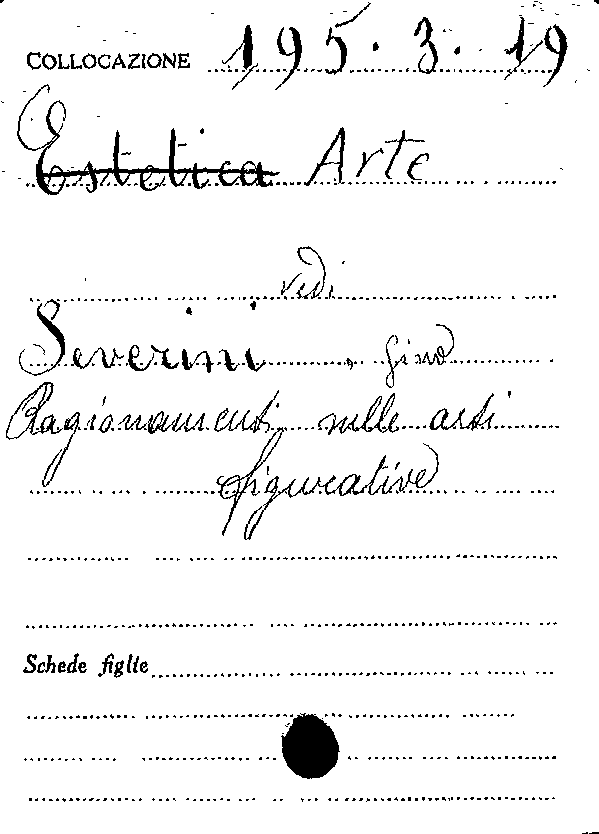 COLLOCAZIONE 195.3.19
Estetica Arte
vedi
Severini, Gino
Ragionamenti sulle arti
figurative
Schede figlie